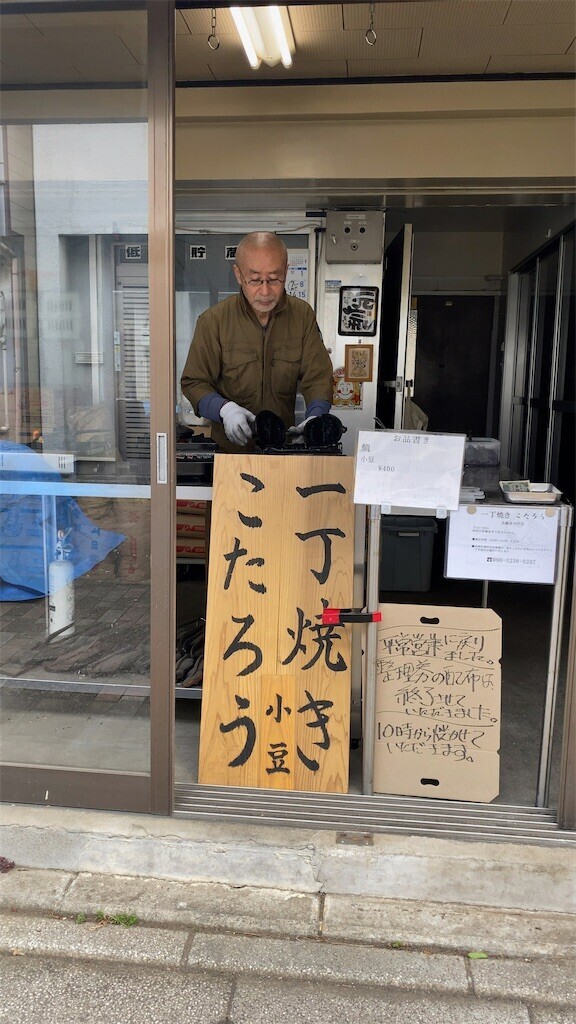 低
貯
元気
お品書き
鯛
小豆
¥400
一丁焼き こたろう
090-5238-5237
一丁焼き
こたろう
小豆
平常営業に戻り
ました。
整理券の配布は
終了させて
いただきました。
10時から焼かせて
いただきます。